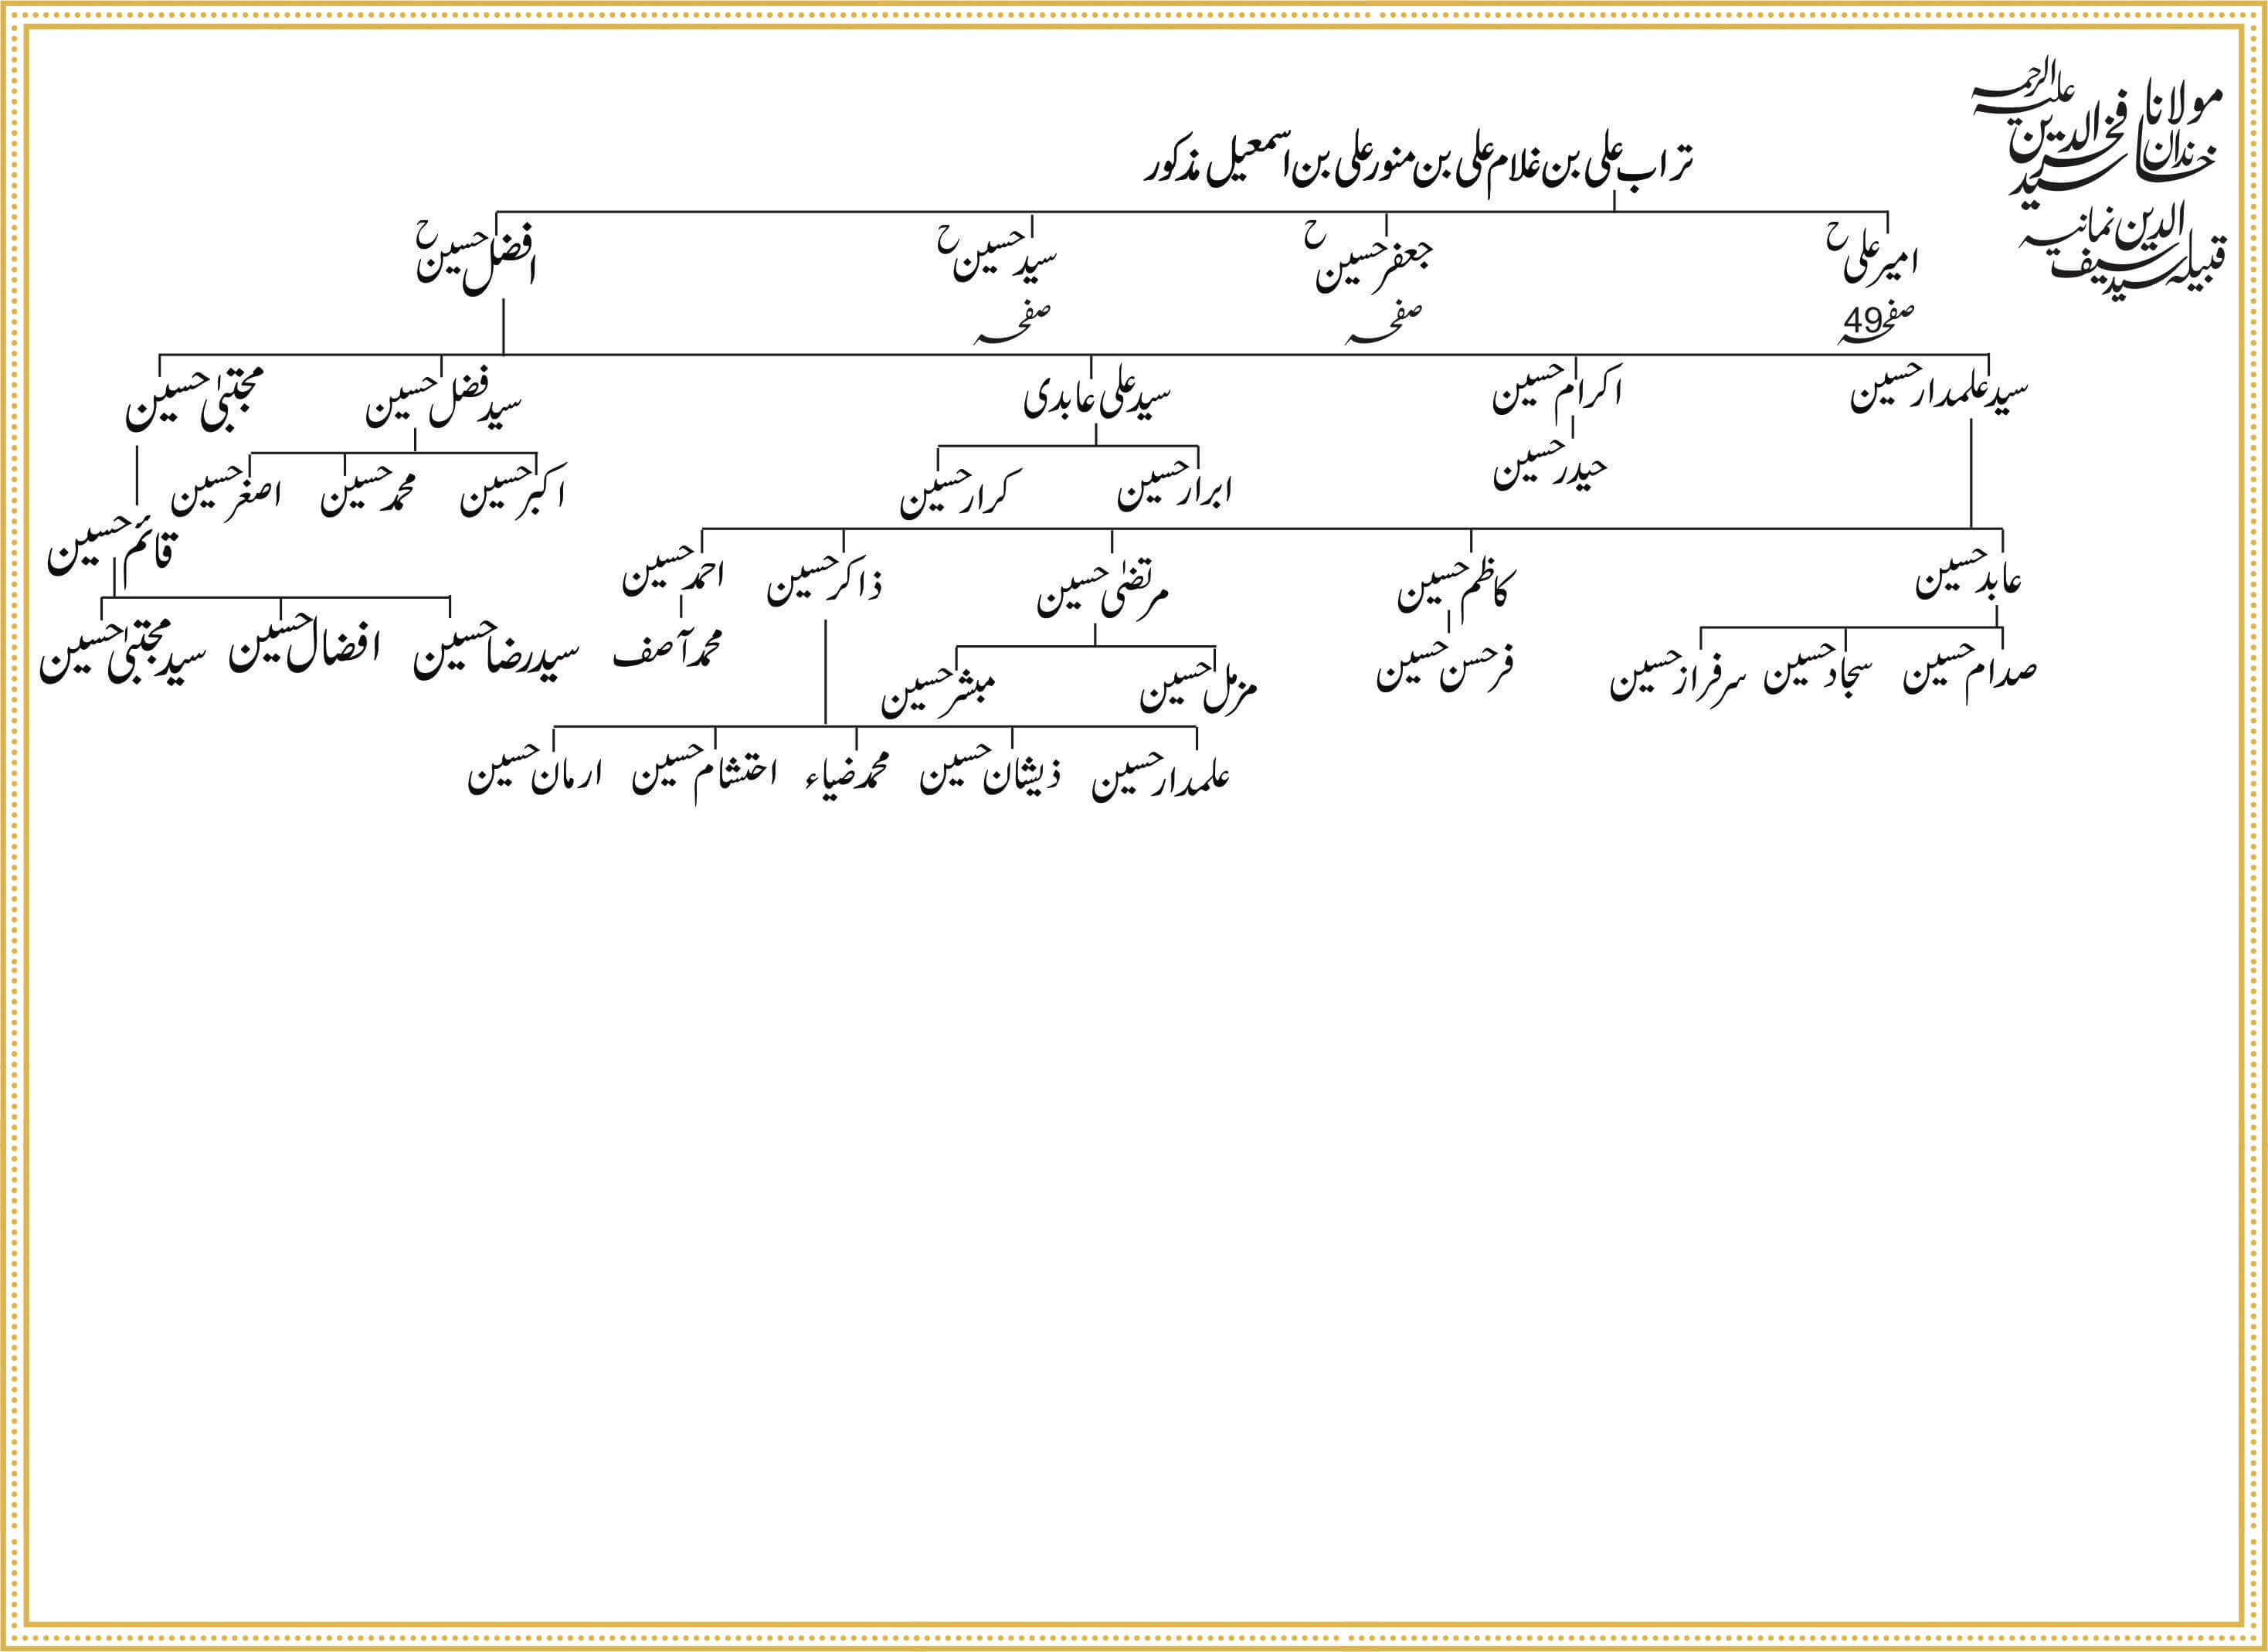 مولانا سید فخرالدین علیہ الرحمہ
خاندان
قبیلہ سید سیف الدین نمانیہ
تراب علی بن غلام علی بن منور علی بن اسمعیل مذکور
امیر علی ح
جعفر حسین ح
سید حسین ح
افضل حسین ح
صفحہ 49
صفحہ
صفحہ
سید علمدار حسین
اکرام حسین
سید علی عابدی
سید فضل حسین
مجتبیٰ حسین
حیدر حسین
ابرار حسین
کرار حسین
اکبر حسین
محمد حسین
اصغر حسین
قائم حسین
عابد حسین
کاظم حسین
مرتضیٰ حسین
ذاکر حسین
احمد حسین
صدام حسین
سجاد حسین
سرفراز حسین
فرحسن حسین
مزمل حسین
مبشر حسین
محمد آصف
سید رضا حسین
افضال حسین
سید مجتبیٰ حسین
علمدار حسین
ذیشان حسین
محمد ضیاء
احتشام حسین
ارمان حسین